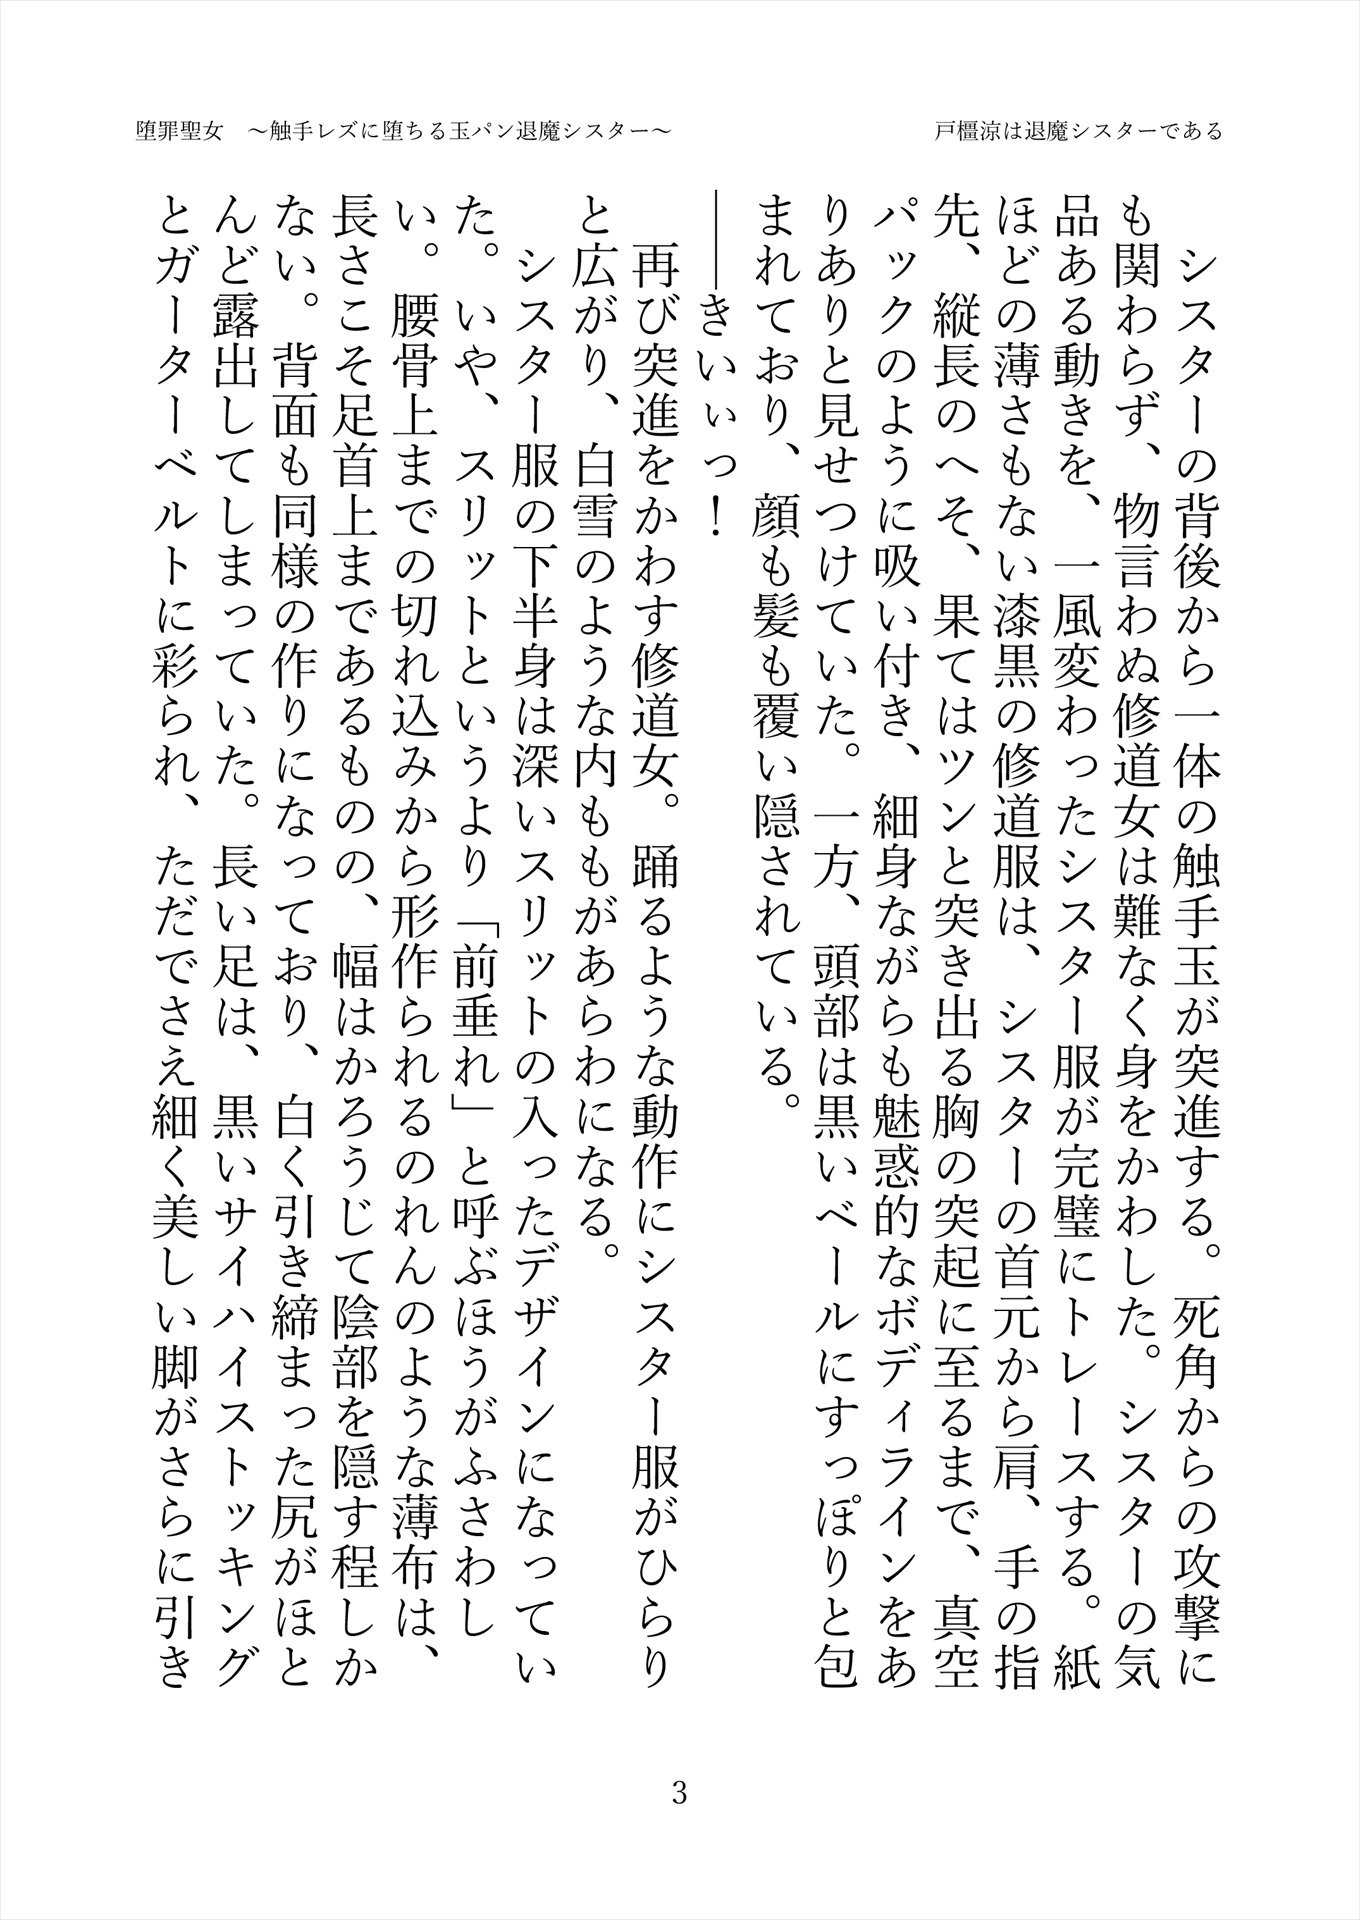 堕罪聖女　～触手レズに堕ちる玉パン退魔シスター～
戸橿涼は退魔シスターである
シスターの背後から一体の触手玉が突進する。死角からの攻撃に
も関わらず、物言わぬ修道女は難なく身をかわした。シスターの気
品ある動きを、一風変わったシスター服が完璧にトレースする。紙
ほどの薄さもない漆黒の修道服は、シスターの首元から肩、手の指
先、縦長のへそ、果てはツンと突き出る胸の突起に至るまで、真空
パックのように吸い付き、細身ながらも魅惑的なボディラインをあ
りありと見せつけていた。一方、頭部は黒いベールにすっぽりと包
まれており、顔も髪も覆い隠されている。
――きいぃっ！
再び突進をかわす修道女。踊るような動作にシスター服がひらり
と広がり、白雪のような内ももがあらわになる。
シスター服の下半身は深いスリットの入ったデザインになってい
た。いや、スリットというより「前垂れ」と呼ぶほうがふさわし
い。腰骨上までの切れ込みから形作られるのれんのような薄布は、
長さこそ足首上まであるものの、幅はかろうじて陰部を隠す程しか
ない。背面も同様の作りになっており、白く引き締まった尻がほと
んど露出してしまっていた。長い足は、黒いサイハイストッキング
とガーターベルトに彩られ、ただでさえ細く美しい脚がさらに引き
3